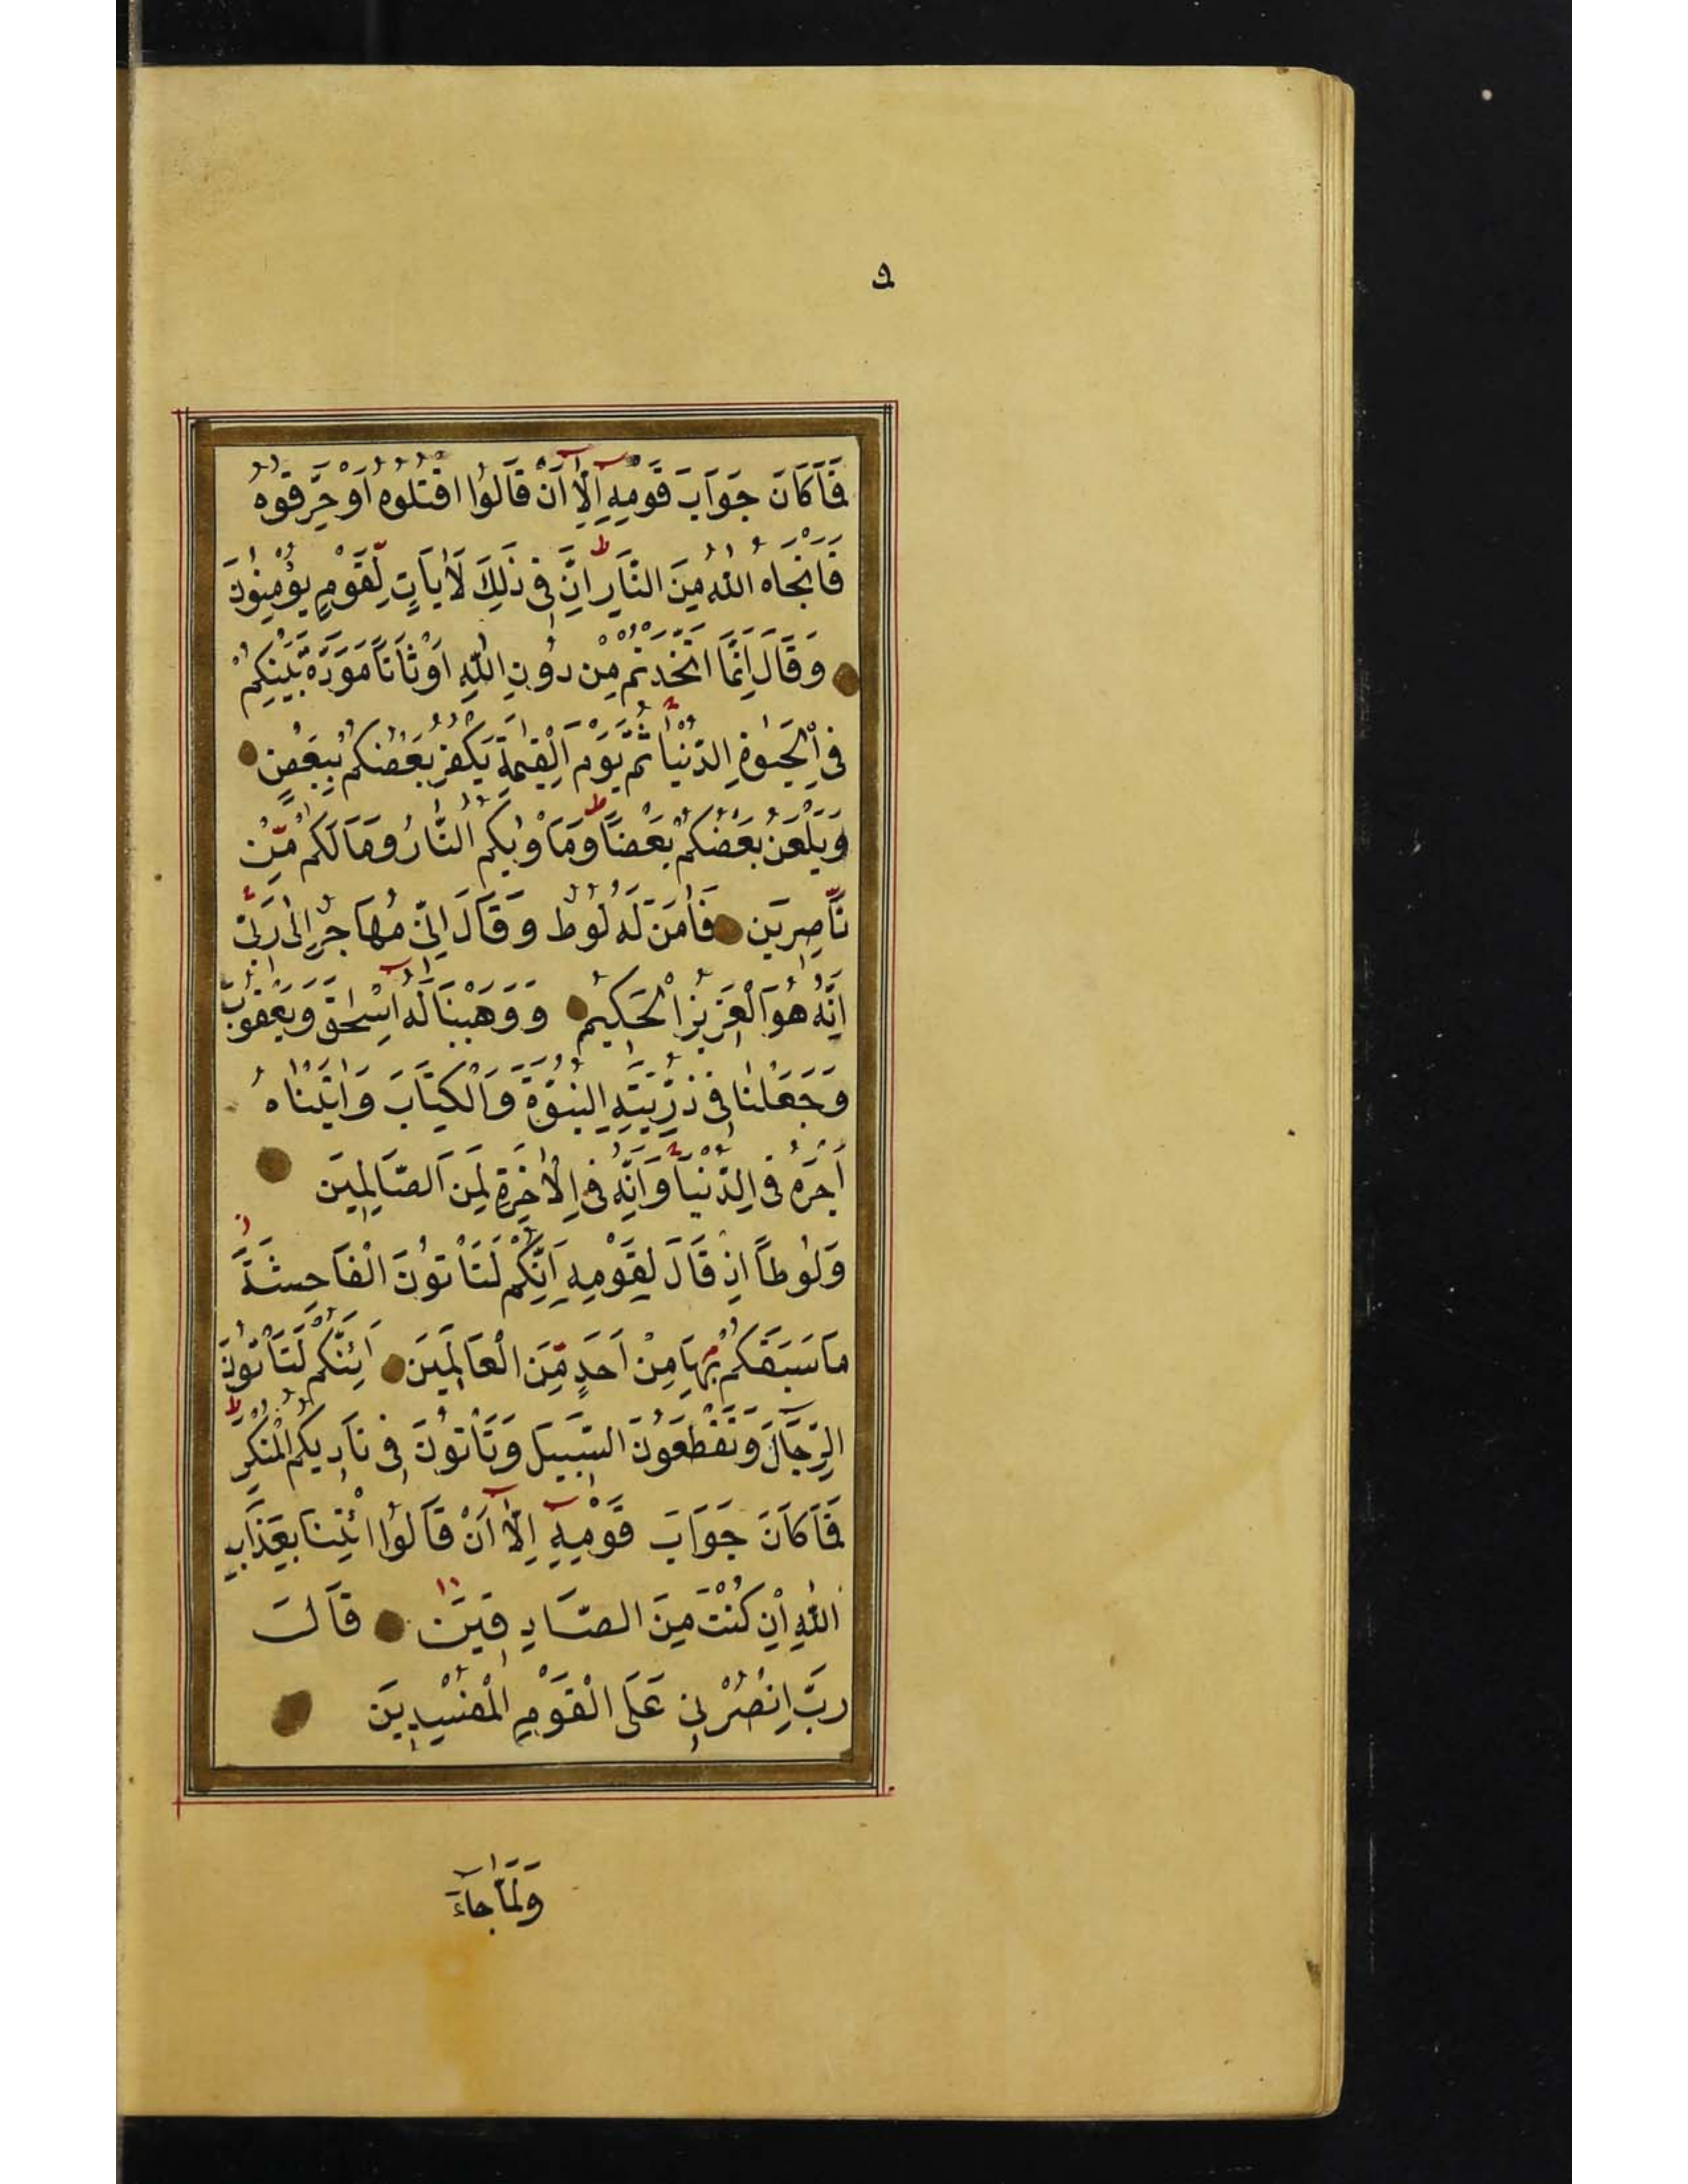 فَمَا كَانَ جَوَابَ قَوْمِهِ اِلَّا اَنْ قَالُوا اقْتُلُوهُ اَوْ حَرِّقُوهُ
فَاَنْجَاهُ اللّٰهُ مِنَ النَّارِ اِنَّ فِى ذٰلِكَ لَاٰيَاتٍ لِقَوْمٍ يُؤْمِنُونَ
وَقَالَ اِنَّمَا اتَّخَذْتُمْ مِنْ دُونِ اللّٰهِ اَوْثَانًا مَوَدَّةَ بَيْنِكُمْ
فِى الْحَيٰوةِ الدُّنْيَا ثُمَّ يَوْمَ الْقِيٰمَةِ يَكْفُرُ بَعْضُكُمْ بِبَعْضٍ
وَيَلْعَنُ بَعْضُكُمْ بَعْضًا وَمَاْوٰيكُمُ النَّارُ وَمَا لَكُمْ مِنْ
نَاصِرِينَ فَاٰمَنَ لَهُ لُوطٌ وَقَالَ اِنِّى مُهَاجِرٌ اِلٰى رَبِّى
اِنَّهُ هُوَ الْعَزِيزُ الْحَكِيمُ وَوَهَبْنَا لَهُ اِسْحٰقَ وَيَعْقُوبَ
وَجَعَلْنَا فِى ذُرِّيَّتِهِ النُّبُوَّةَ وَالْكِتَابَ وَاٰتَيْنَاهُ
اَجْرَهُ فِى الدُّنْيَا وَاِنَّهُ فِى الْاٰخِرَةِ لَمِنَ الصَّالِحِينَ
وَلُوطًا اِذْ قَالَ لِقَوْمِهِ اِنَّكُمْ لَتَاْتُونَ الْفَاحِشَةَ
مَا سَبَقَكُمْ بِهَا مِنْ اَحَدٍ مِنَ الْعَالَمِينَ اَئِنَّكُمْ لَتَاْتُونَ
الرِّجَالَ وَتَقْطَعُونَ السَّبِيلَ وَتَاْتُونَ فِى نَادِيكُمُ الْمُنْكَرَ
فَمَا كَانَ جَوَابَ قَوْمِهِ اِلَّا اَنْ قَالُوا ائْتِنَا بِعَذَابِ
اللّٰهِ اِنْ كُنْتَ مِنَ الصَّادِقِينَ قَالَ
رَبِّ انْصُرْنِى عَلَى الْقَوْمِ الْمُفْسِدِينَ
وَلَمَّا جَاءَ